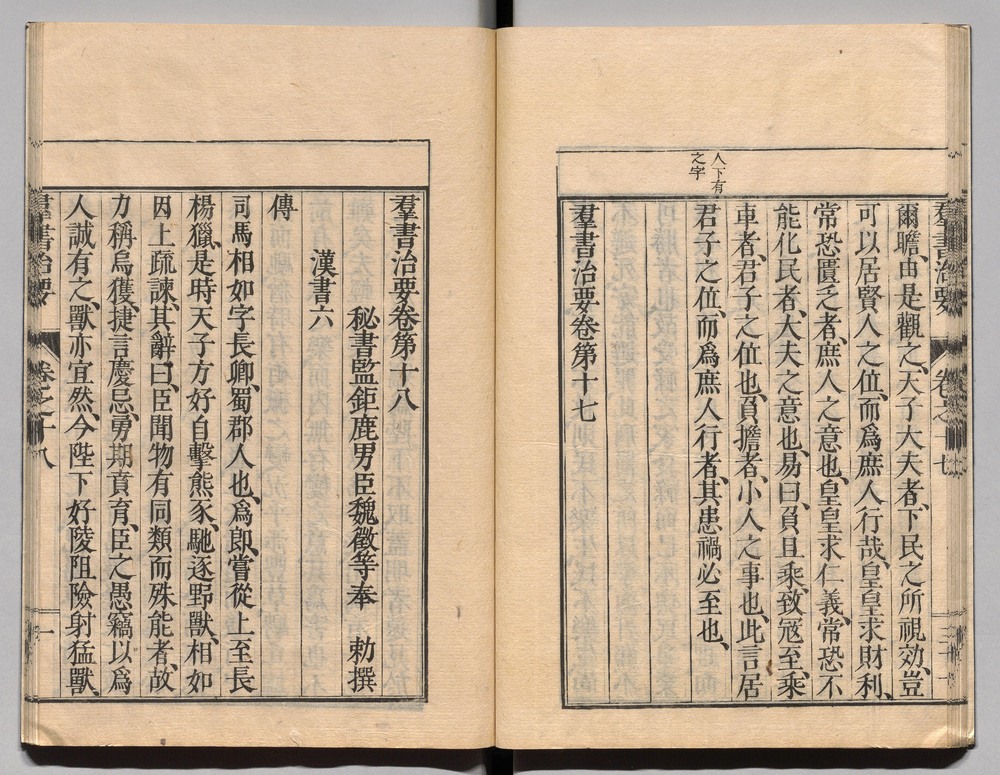 羣書治要 卷之十七
爾瞻、由是觀之、天子大夫者、下民之所視効、豈
可以居賢人之位、而爲庶人行哉、皇皇求財利、
常恐匱乏者、庶人之意也、皇皇求仁義、常恐不
能化民者、大夫之意也、易曰、負且乘、致寇至、乘
車者、君子之位也、負擔者、小人之事也、此言居
君子之位、而爲庶人行者、其患禍必至也、
人下有
之字
羣書治要卷第十七
羣書治要卷第十八
秘書監鉅鹿男臣魏徵等奉 勅撰
漢書六
傳
司馬相如字長卿、蜀郡人也、爲郎、嘗從上至長
楊獵、是時天子方好自擊熊豕、馳逐野獸、相如
因上疏諫、其辭曰、臣聞物有同類而殊能者、故
力稱烏獲、捷言慶忌、勇期賁育、臣之愚、竊以爲
人誠有之、獸亦宜然、今陛下好陵阻險射猛獸、
羣書治要 卷之十八 一